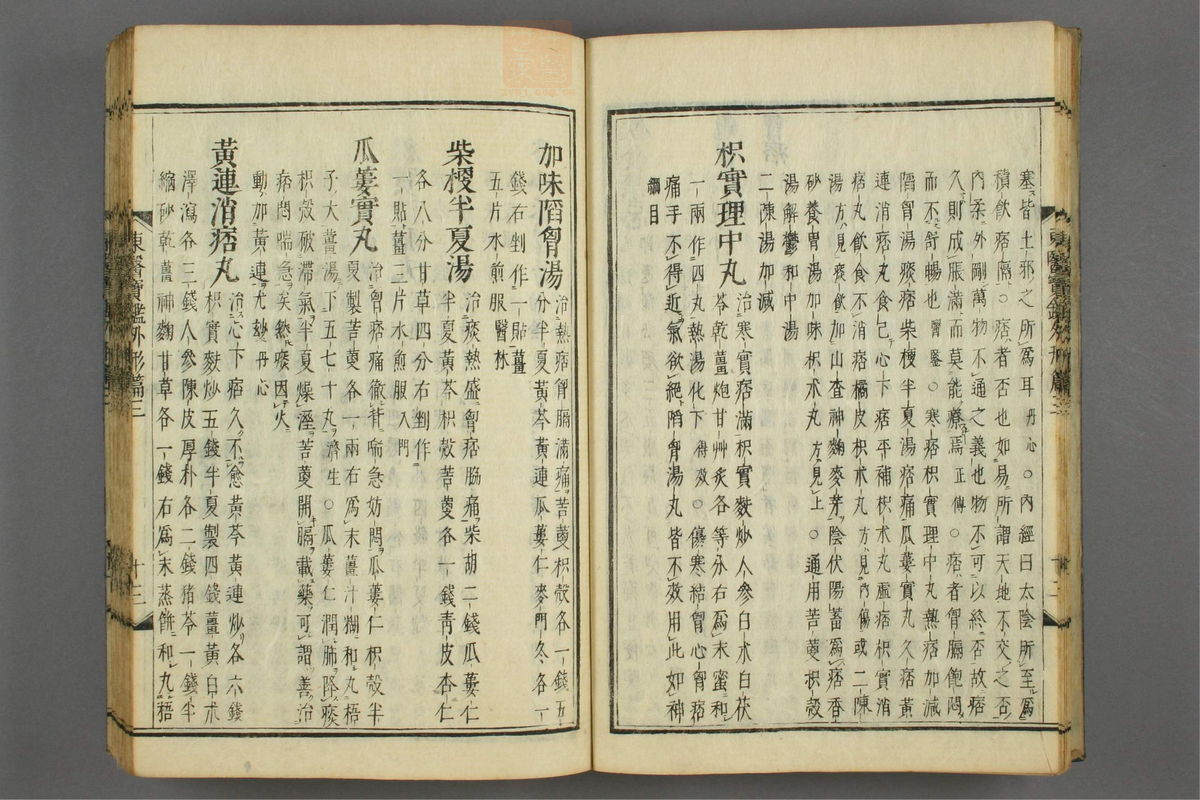 塞皆土邪之所爲耳丹心○內經曰太陰所至爲
積飮痞膈○痞者否也如易所謂天地不交之否
內柔外剛萬物不通之義也物不可以終否故痞
久則成脹滿而莫能療焉正傳○痞者胷膈飽悶
而不舒暢也醫鑒○寒痞枳實理中丸熱痞加減
陷胷湯痰痞柴梗半夏湯痞痛瓜蔞實丸久痞黃
連消痞丸食已心下痞平補枳朮丸虛痞枳實消
痞丸飮食不消痞橘皮枳朮丸方見內傷或二陳
湯方見痰飮加山査神麴麥芽陰伏陽蓄爲痞香
砂養胃湯加味枳朮丸方見上○通用苦蔞枳殼
湯解鬱和中湯
二陳湯加減
枳實理中丸治寒實痞滿枳實麩炒人參白朮白茯
苓乾薑炮甘艸炙各等分右爲末蜜和
一兩作四丸熱湯化下得效○傷寒結胷心胷痞
痛手不得近氣欲絕陷胷湯丸皆不效用此如神
綱目
加味陷胷湯治熱痞胷膈滿痛苦蔞枳殼各一錢五
分半夏黃芩黃連瓜蔞仁麥門冬各一
錢右剉作一貼薑
五片水煎服醫林
柴梗半夏湯治痰熱盛胷痞脇痛柴胡二錢瓜蔞仁
半夏黃芩枳殼苦蔞各一錢靑皮杏仁
各八分甘草四分右剉作
一貼薑三片水煎服入門
瓜蔞實丸治胷痞痛徹背喘急妨悶瓜蔞仁枳殼半
夏製苦蔞各一兩右爲末薑汁糊和丸梧
子大薑湯下五七十丸濟生○瓜蔞仁潤肺降痰
枳殼破滯氣半夏燥溼苦蔞開膈載藥可謂善治
痞悶喘急矣然痰因火
動加黃連尤玅丹心
黃連消痞丸治心下痞久不愈黃芩黃連炒各六錢
枳實麩炒五錢半夏製四錢薑黃白朮
澤瀉各三錢人參陳皮厚朴各二錢猪苓一錢半
縮砂乾薑神麴甘草各一錢右爲末蒸餠和丸梧
東醫寶鑑外形篇三 十三